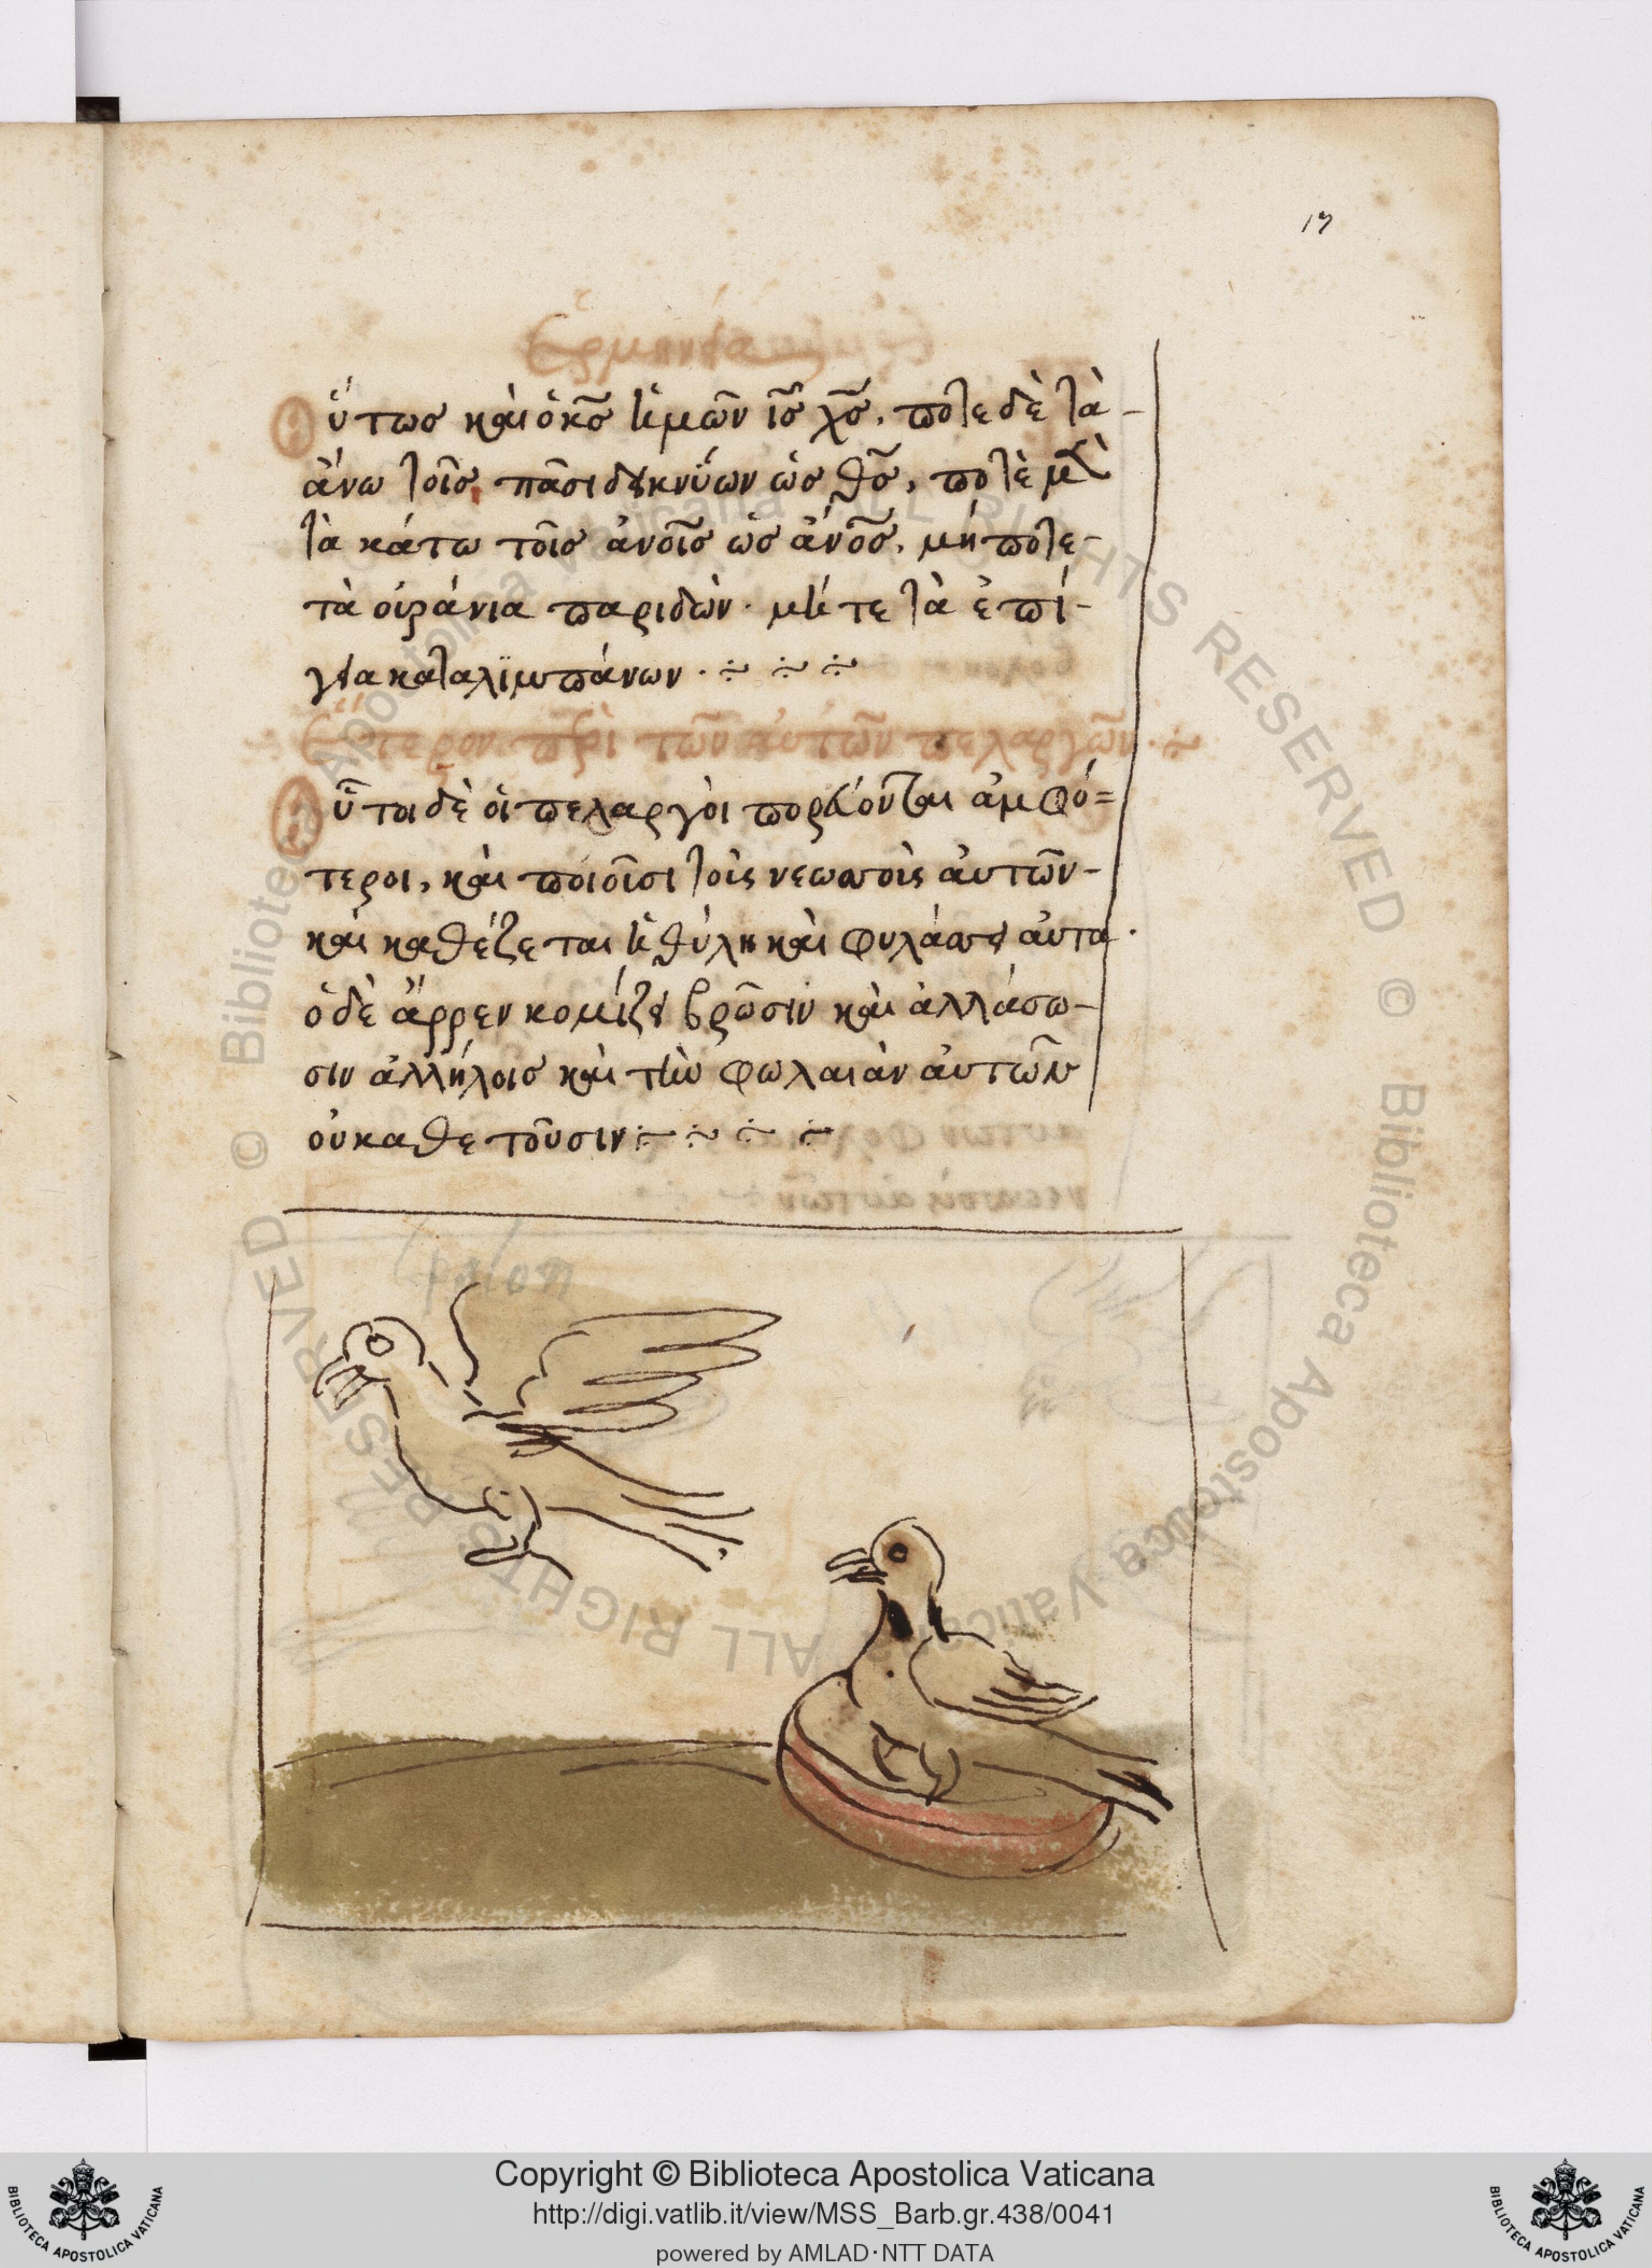 17
Ἑρμηνεία
Οὕτως καὶ ὁ κς̃ ἡμῶν ις̃ χς̃, ποτε δὲ τὰ
ἄνω τοῖς πᾶσι δεικνύων ὡς θς̃, ποτὲ μὲ
τὰ κάτω τοῖς ἀνοῖς ὡς ἄνος̃. μήποτε
τὰ οὐράνια παριδὼν. μήτε τὰ ἐπί-
γεια καταλιμπάνων. ÷ ÷ ÷
Ἕτερον περὶ τῶν αὐτῶν πελαργῶν. ÷
Οὗτοι δὲ οἱ πελαργοὶ πορεύονται ἀμφό=
τεροι, καὶ ποιοῖσι τοὶς νεωστοὶς ἀυτῶν-
καὶ καθέζεται ἡ θύλη καὶ φυλάστει ἀυτα.
ὁ δὲ ἄρρεν κομίζει βρῶσιν καὶ ἀλλάσω-
σιν ἀλλήλοις καὶ τὴν φωλαιὰν ἀυτῶν
οὐκαθετοῦσιν ÷ ÷ ÷ ÷
Copyright © Biblioteca Apostolica Vaticana
http://digi.vatlib.it/view/MSS_Barb.gr.438/0041
powered by AMLAD·NTT DATA
BIBLIOTECA APOSTOLICA VATICANA
BIBLIOTECA APOSTOLICA VATICANA
© Biblioteca Apostolica Vaticana ALL RIGHTS RESERVED © Biblioteca Apostolica Vaticana ALL RIGHTS RESERVED